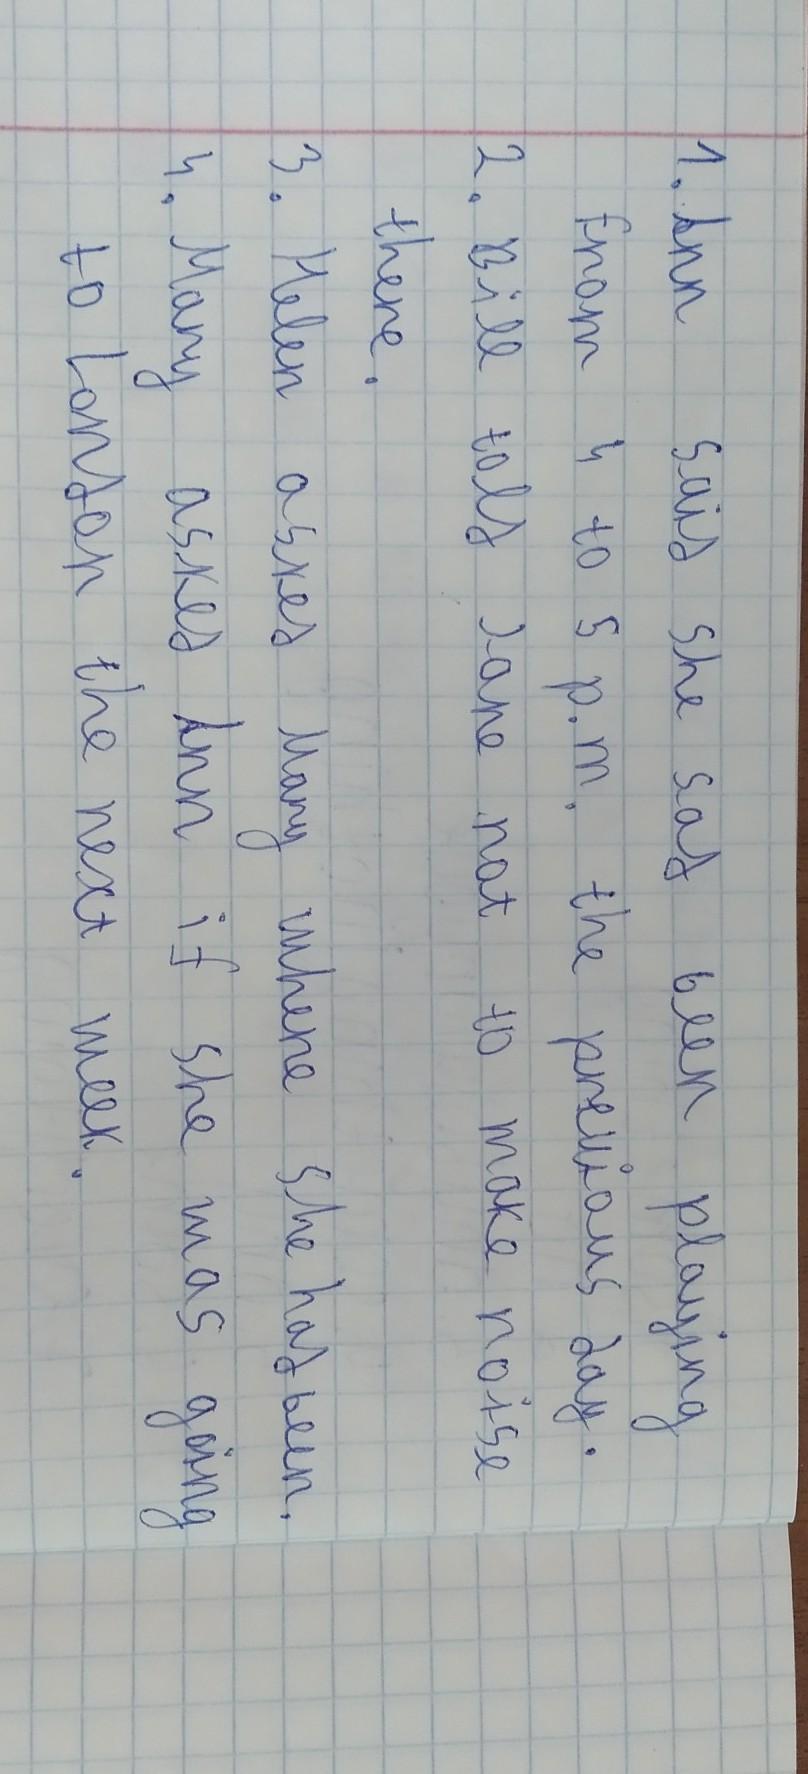 1. Ann said she sad been playing
from 4 to 5 p.m. the previous day.
2. Bill told Jane not to make noise
there.
3. Helen asked Mary where she had been.
4. Mary asked Ann if she was going
to London the next week.